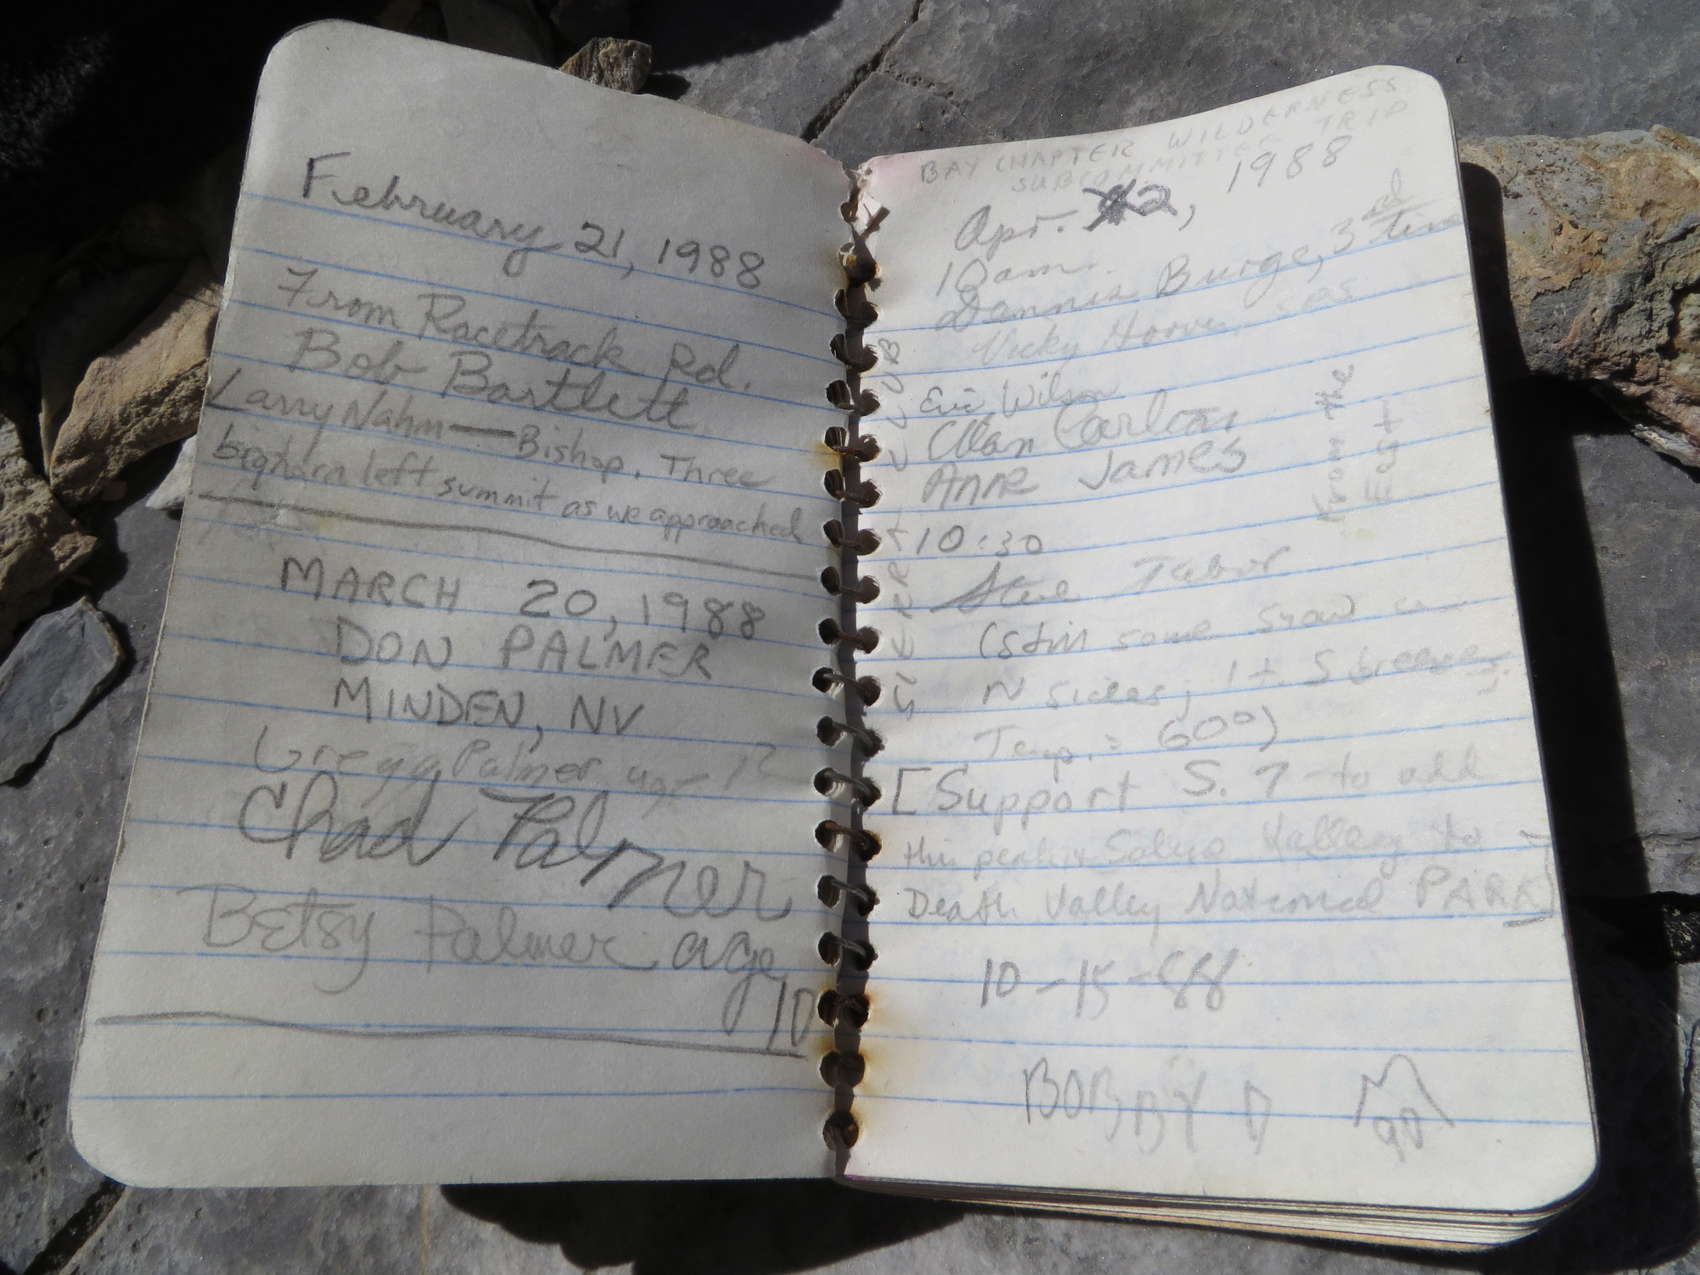 February 21, 1988
From Racetrack Rd.
Bob Bartlett
Larry Nahm — Bishop. Three
bighorn left summit as we approached
MARCH 20, 1988
DON PALMER
MINDEN, NV
Gregg Palmer age 12
Chad Palmer
Betsy Palmer age
10
BAY CHAPTER WILDERNESS
SUBCOMMITTEE TRIP
Apr. 2, 1988
10 am.
Dennis Burge, 3rd time
Vicky Hoover SPS
Eric Wilson
Alan Carlton
Anne James
From the
East
SIERRA CLUB
10:30
Steve Tabor
(Still some snow on
N sides; lt. S breeze,
Temp. = 60°)
[Support S. 7 to add
this peak & Saline Valley to
Death Valley National PARK]
10-15-88
BOBBY D